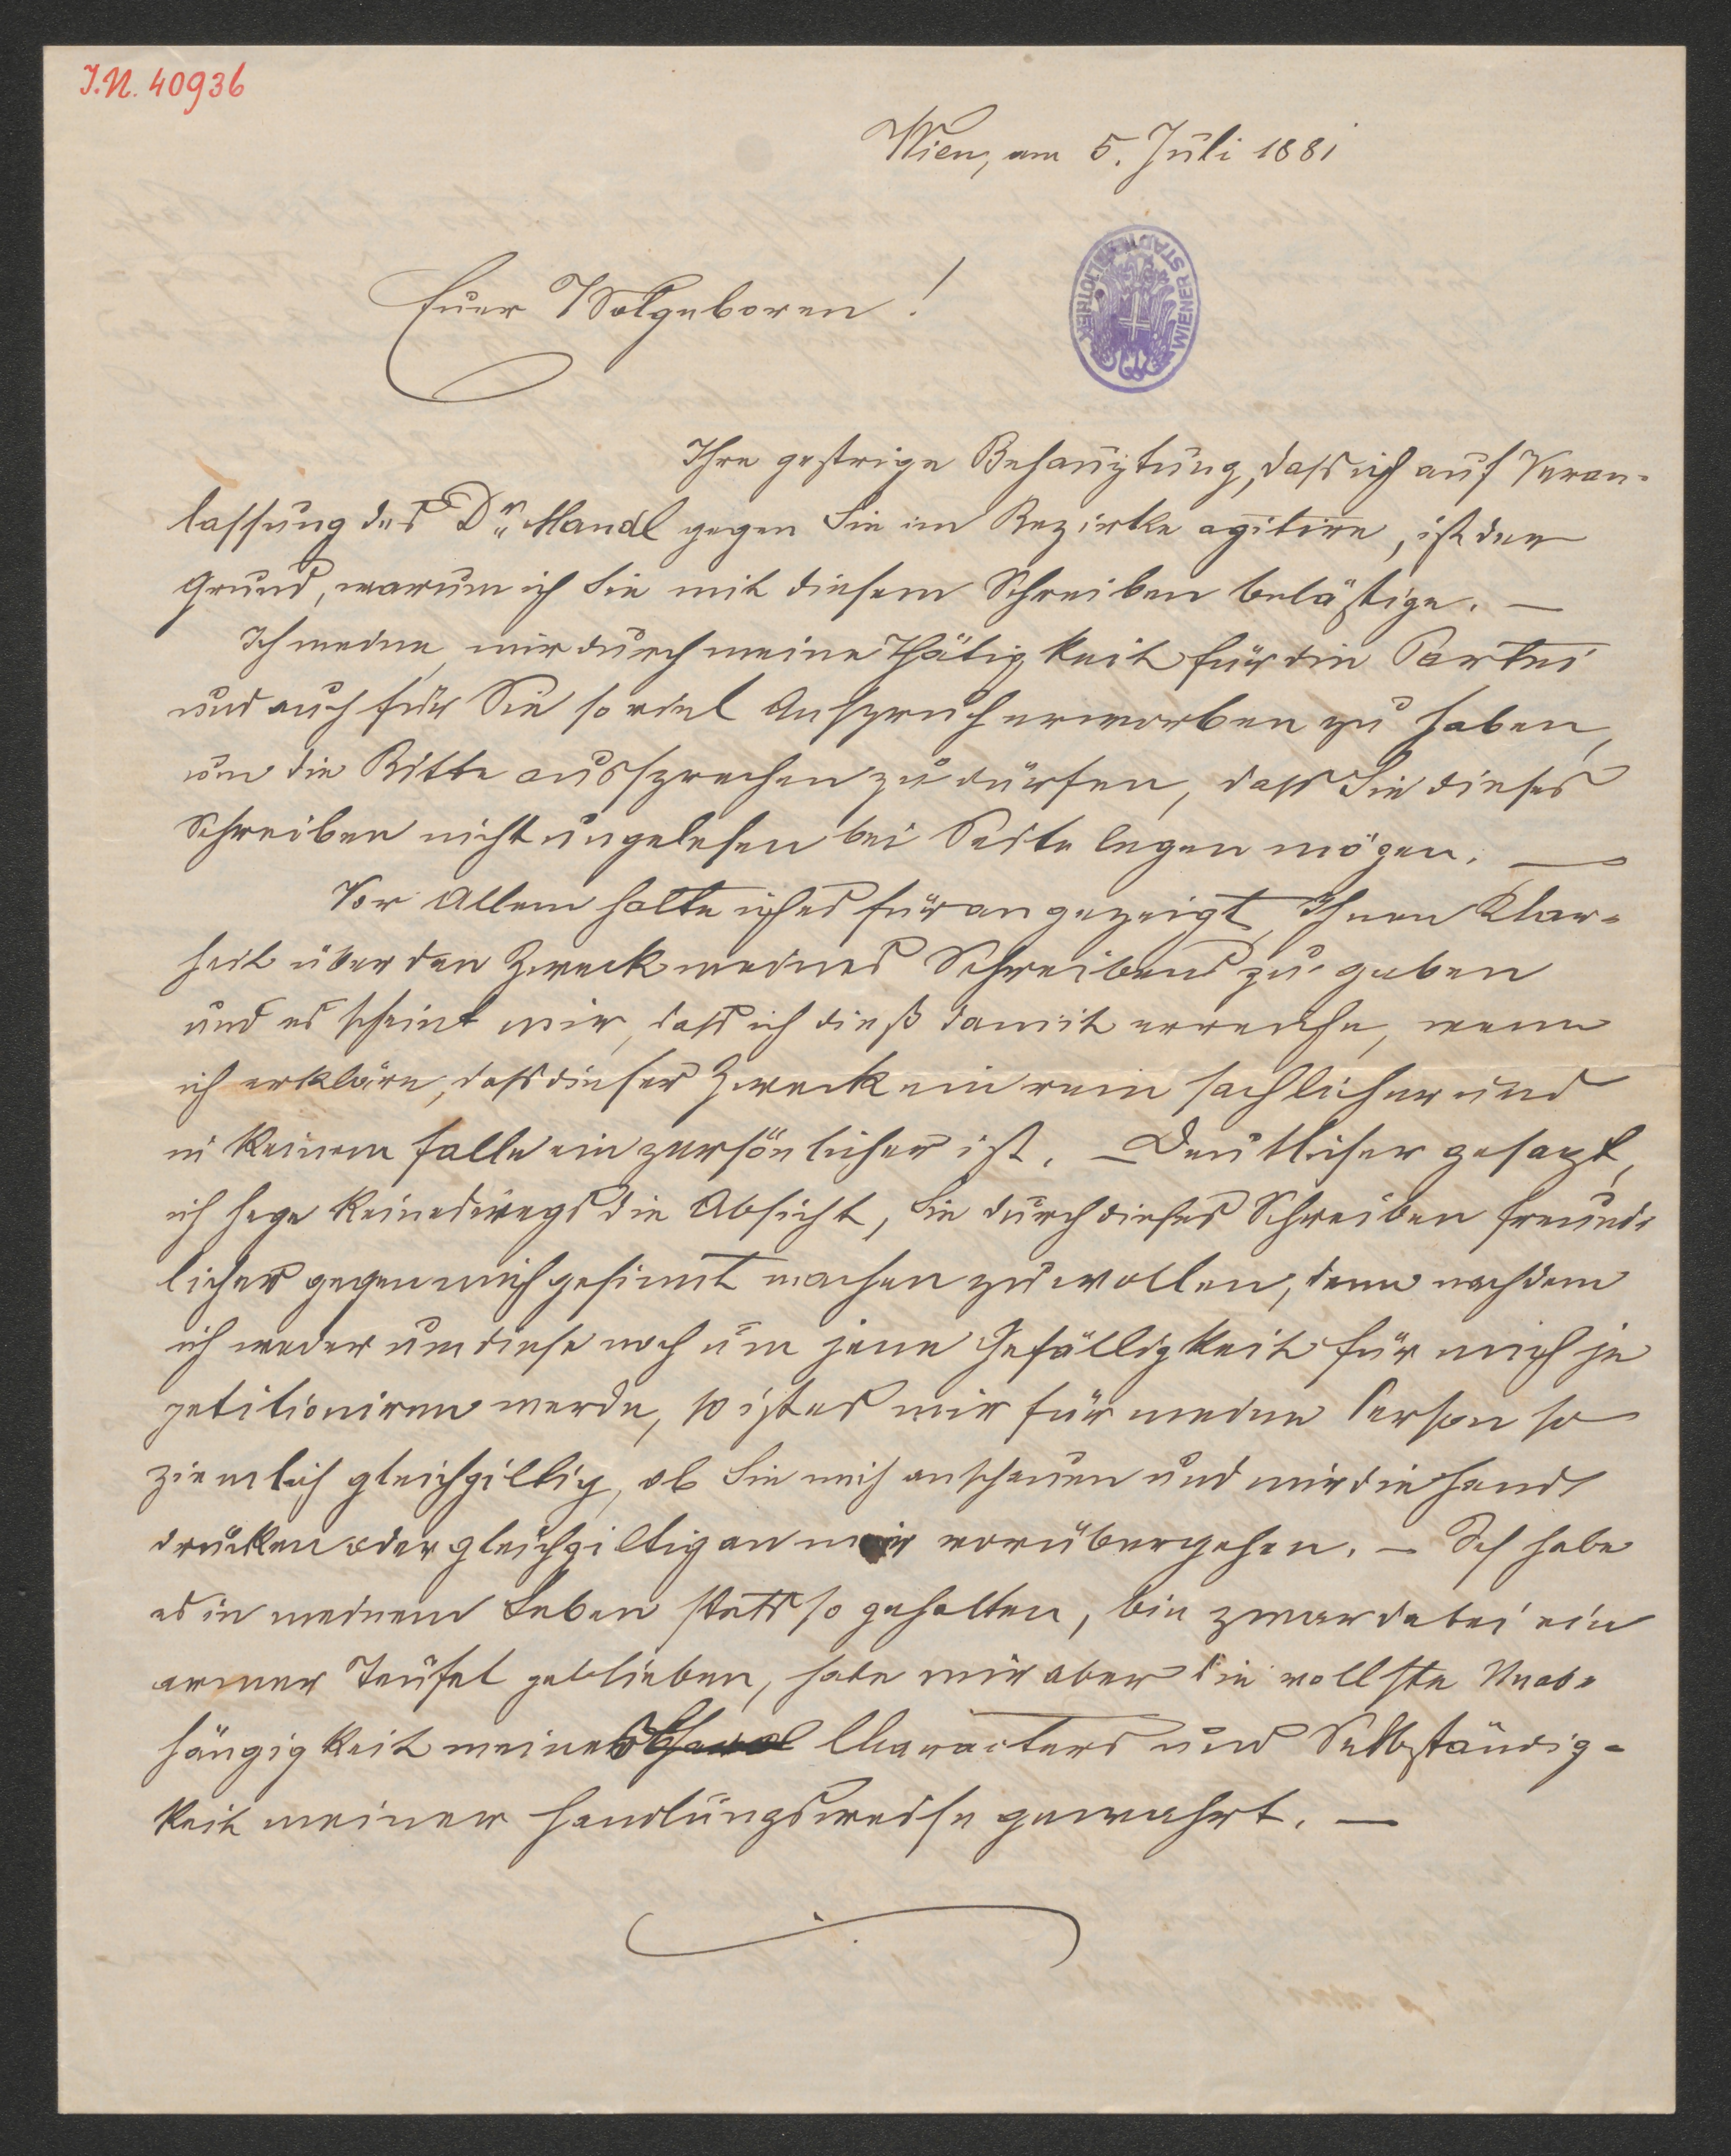 J.N. 40936
Wien, am 5. Juli 1881
Euer Wolgeboren!
WIENER STADTBIBLIOTHEK
Ihre gestrige Behauptung, dass ich auf Veran-
lassung des Dr. Mandl gegen Sie im Bezirke agitire, ist der
Grund, warum ich Sie mit diesem Schreiben belästige. —
Ich meine, mir durch meine Thätigkeit für die Partei
und auch für Sie so viel Anspruch erworben zu haben,
um die Bitte aussprechen zu dürfen, dass Sie dieses
Schreiben nicht ungelesen bei Seite legen mögen. —
Vor Allem halte ich es für angezeigt, Ihnen Klar-
heit über den Zweck meines Schreibens zu geben
und es scheint mir, dass ich dieß damit erreiche, wenn
ich erkläre, dass dieser Zweck ein rein sachlicher und
in keinem Falle ein persönlicher ist. — Deutlicher gesagt,
ich hege keineswegs die Absicht, Sie durch dieses Schreiben freund-
licher gegen mich gesinnt machen zu wollen, denn nachdem
ich weder um diese noch um jene Gefälligkeit für mich je
petitioniren werde, so ist es mir für meine Person so
ziemlich gleichgiltig, ob Sie mich anschauen und mir die Hand
drücken oder gleichgiltig an mir vorübergehen. — Ich habe
es in meinem Leben stets so gehalten, bin zwar dabei ein
armer Teufel geblieben, habe mir aber die vollste Unab-
hängigkeit meines Characters und Selbständig-
keit meiner Handlungsweise gewahrt. —